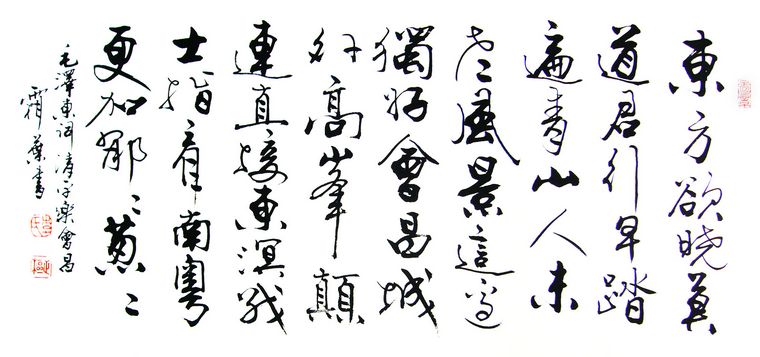 東方欲曉莫
道君行早踏
遍青山人未
老風景這邊
獨好會昌城
外高峯顛
連直接東溟戰
士指看南粵
更加郁々葱々
毛澤東詞清平樂會昌
霜葉書